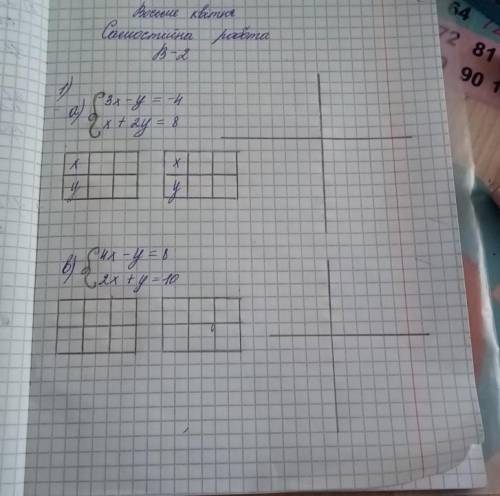 Восьме квітня
Самостійна робота
В-2
1)
а) { 3x - y = -4
x + 2y = 8
x
y
x
y
в) { 4x - y = 8
2x + y = 10
64
72 81
90